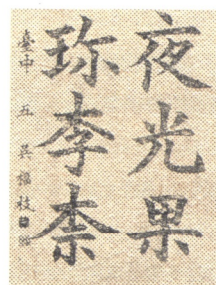 夜光果
珎李柰
臺中 五 吳樞枝